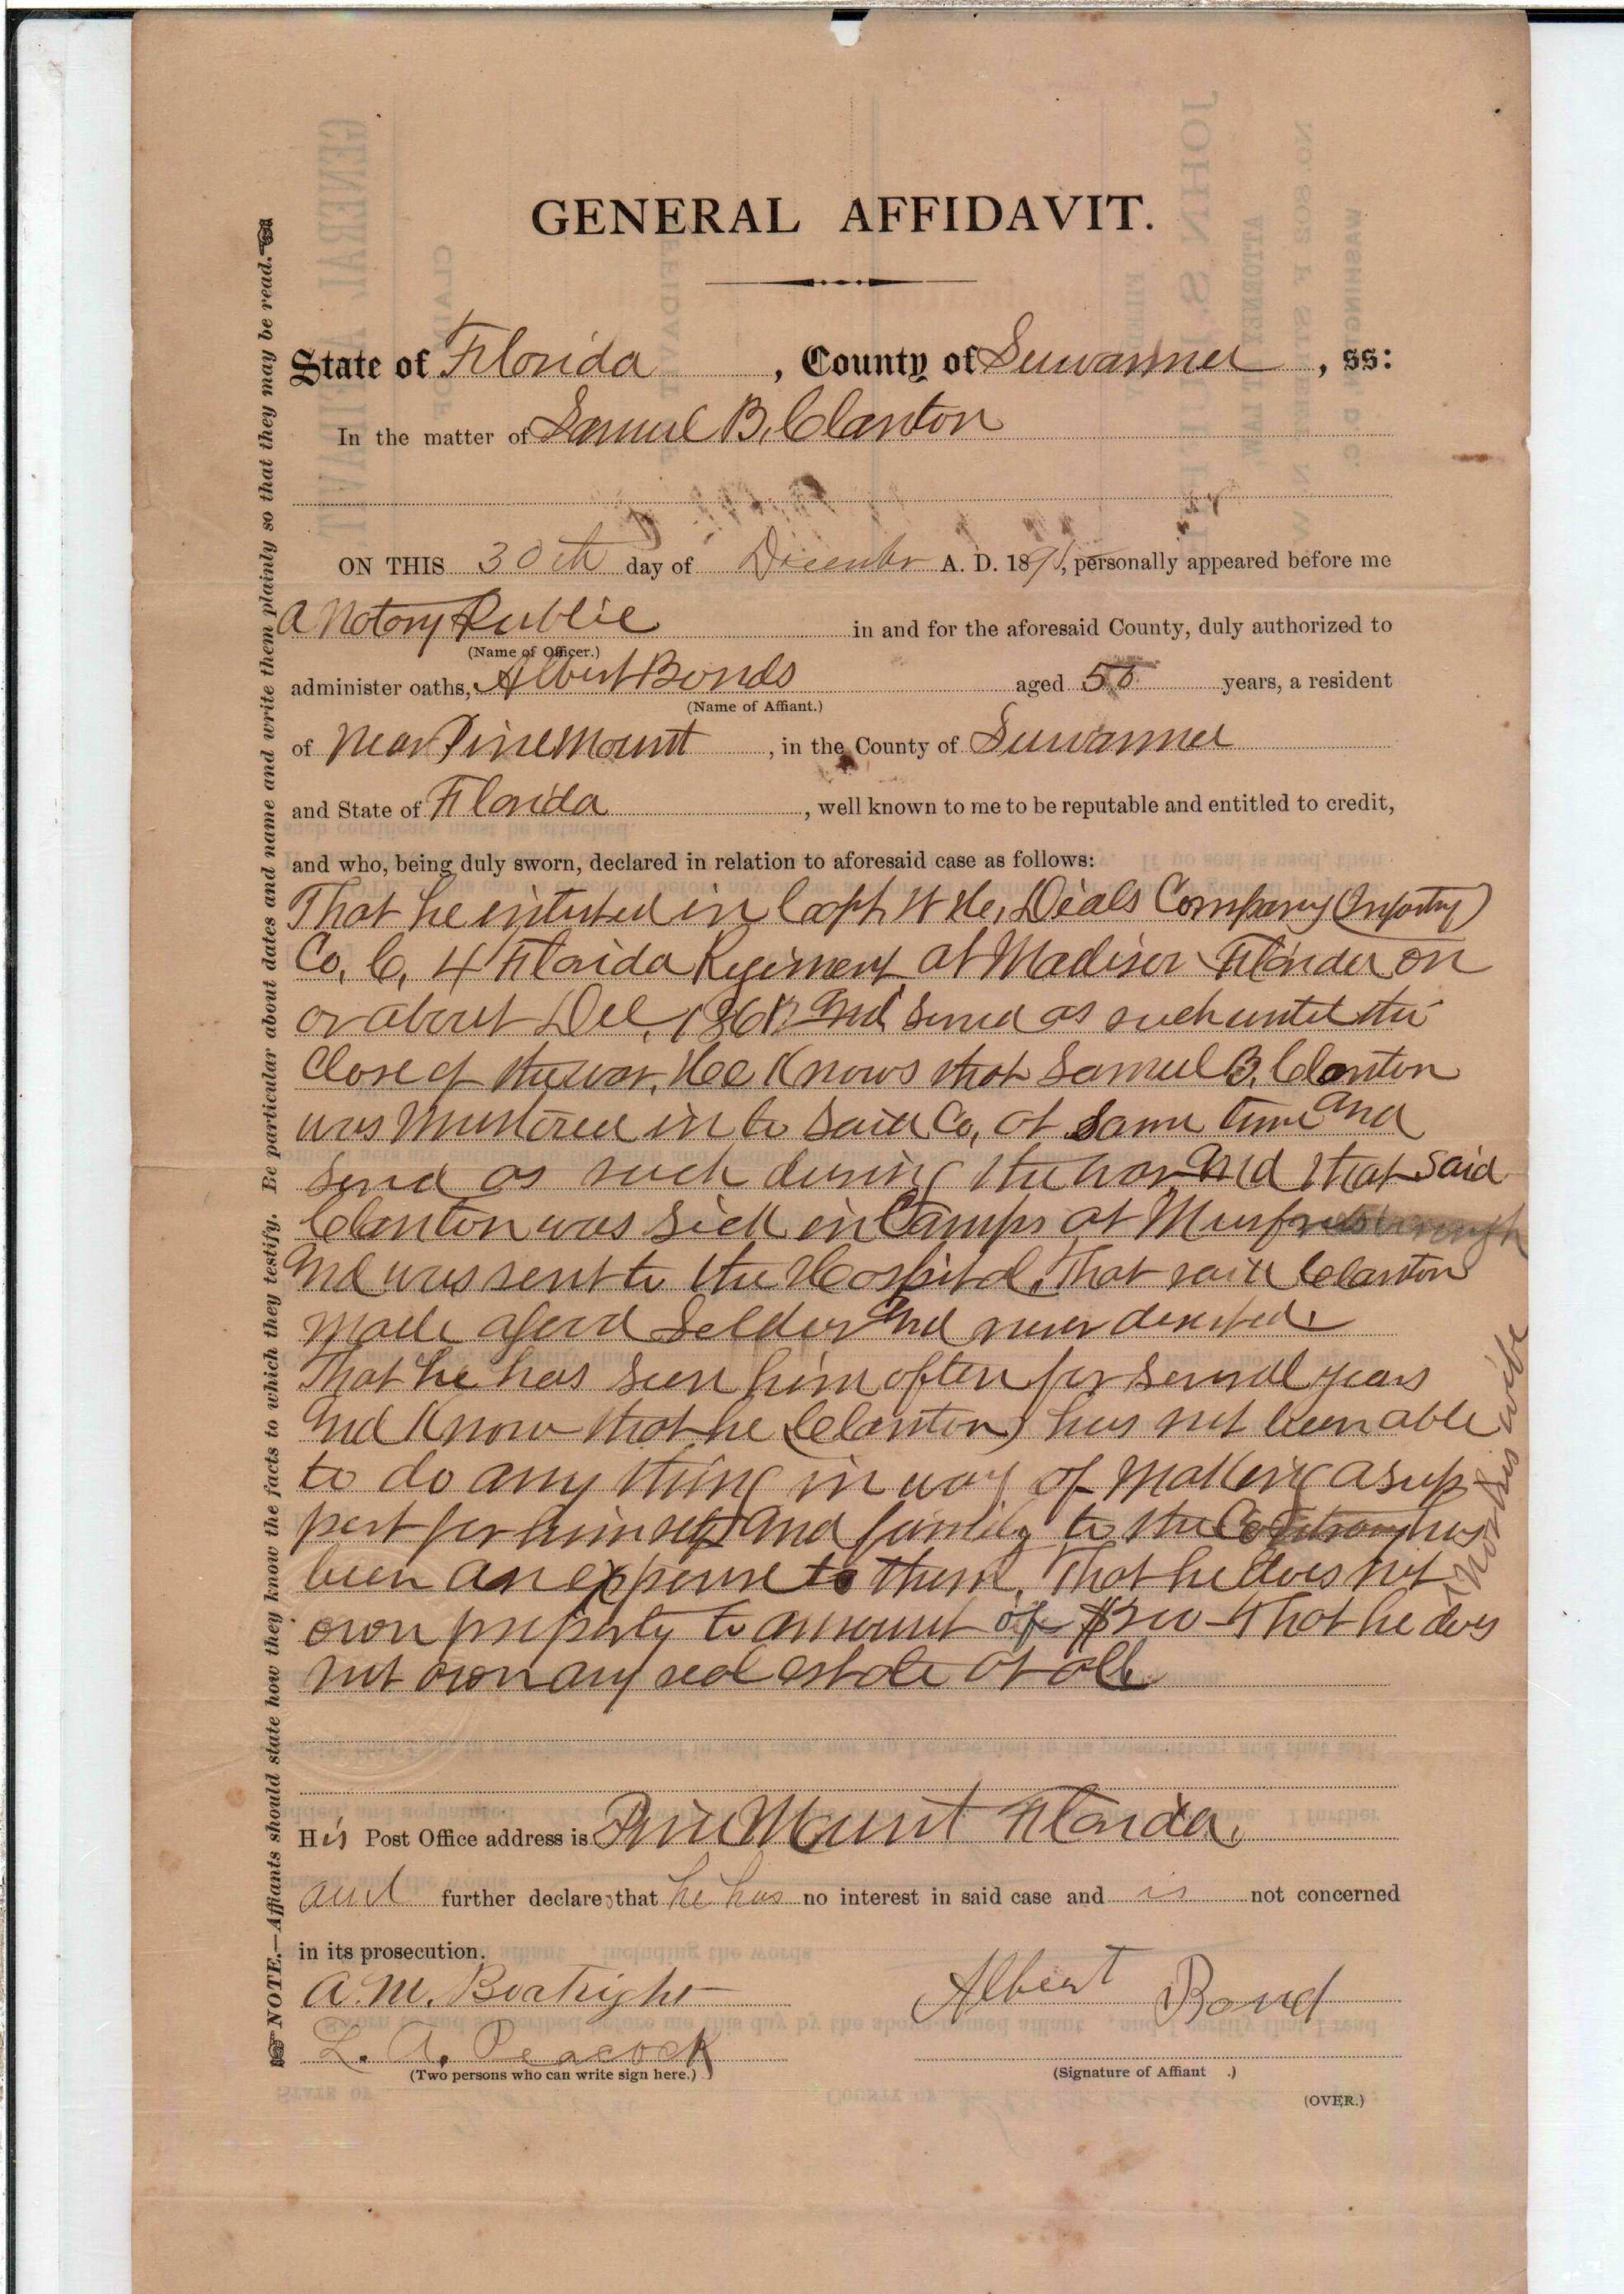 GENERAL AFFIDAVIT.
State of Florida, County of Suwannee, ss:
In the matter of Samuel B. Clanton
ON THIS 30th day of December A. D. 1891, personally appeared before me
a Notary Public in and for the aforesaid County, duly authorized to
(Name of Officer.)
administer oaths, Albert Bonds aged 50 years, a resident
(Name of Affiant.)
of near Pine Mount, in the County of Suwannee
and State of Florida, well known to me to be reputable and entitled to credit,
and who, being duly sworn, declared in relation to aforesaid case as follows:
That he enlisted in Capt. W. H. Dials Company (Infantry)
Co. C. 4 Florida Regiment at Madison Florida on
or about Dec. 1861 and served as such until the
Close of the war. He Knows that Samuel B. Clanton
was Mustered in to said Co, at same time and
served as such during the war and that said
Clanton was sick in Camps at Murfreesborough
and was sent to the Hospital. That said Clanton
made a good Soldier and never deserted.
That he has seen him often for several years
and Know that he (Clanton) has not been able
to do any thing in way of making a sup
port for himself and family to the has
been an expense to them. That he does not
own property to amount of $200 - That he does
not own any real estate at all
nor his wife
His Post Office address is Pine Mount Florida.
and further declare, that he has no interest in said case and is not concerned
in its prosecution.
A. M. Boatright
Albert Bond
L. A. Peacock
(Two persons who can write sign here.)
(Signature of Affiant .)
(OVER.)
NOTE.—Affiants should state how they know the facts to which they testify. Be particular about dates and name and write them plainly so that they may be read.